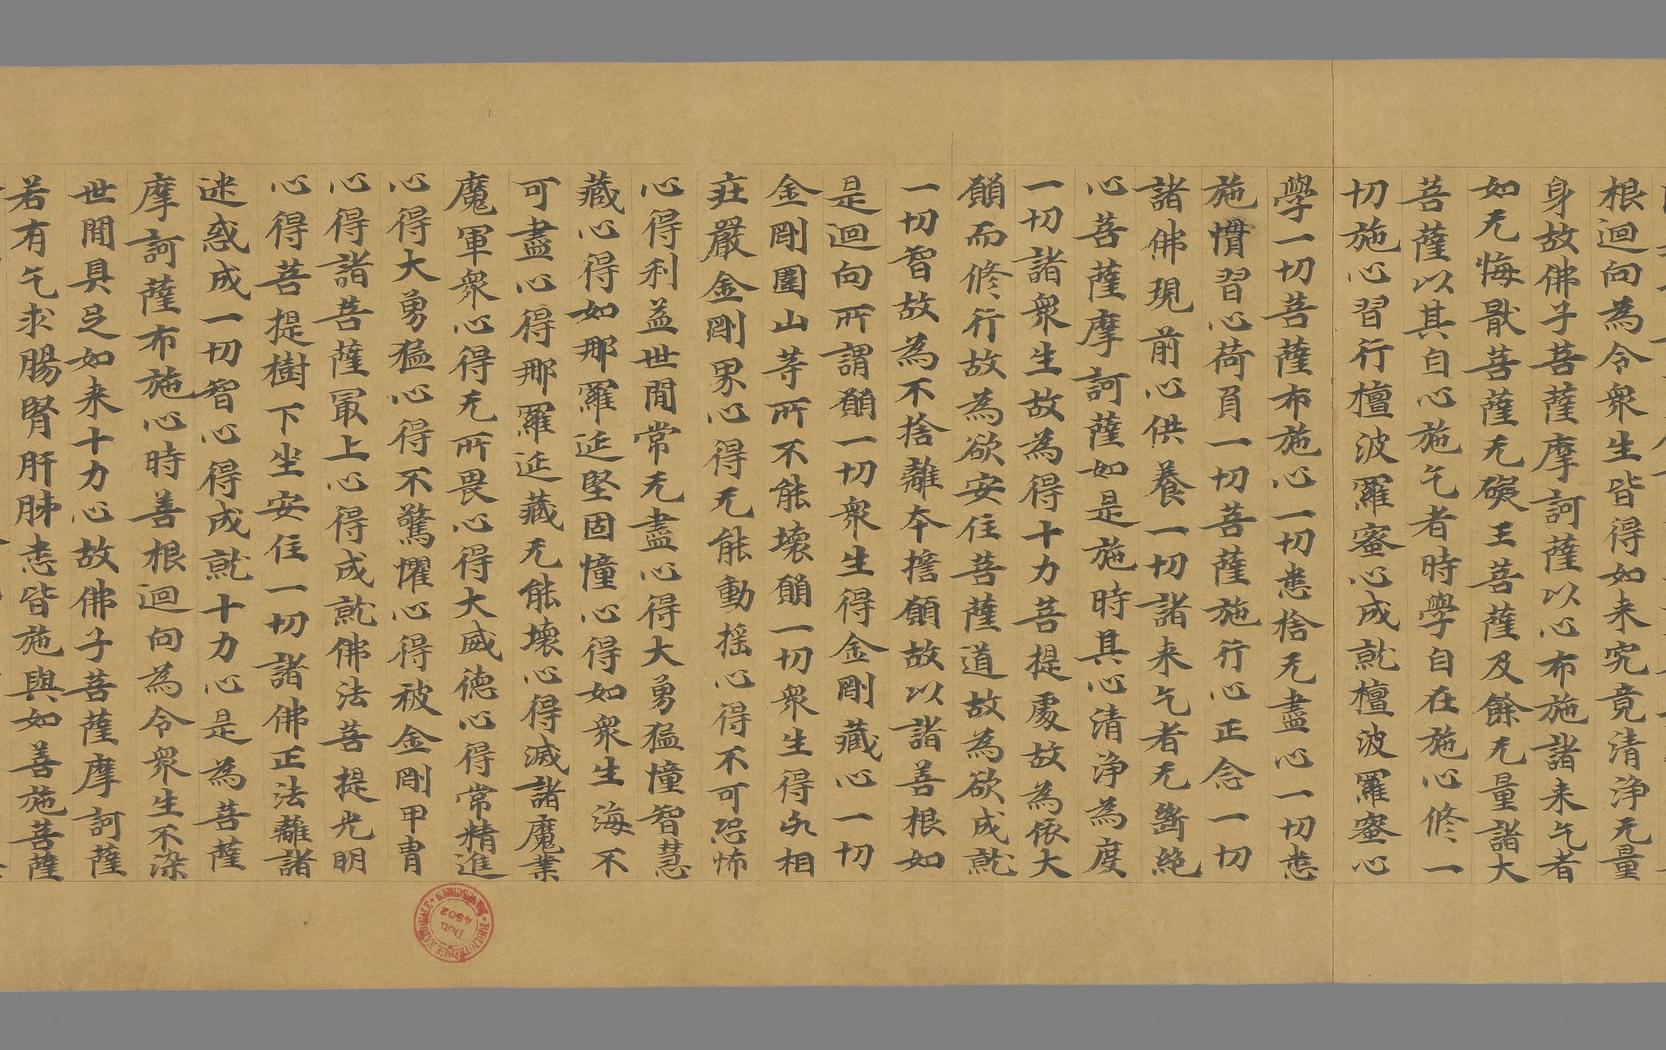 根迴向為令眾生皆得如来究竟清淨无量
身故佛子菩薩摩訶薩以心布施諸来乞者
如无悔猒菩薩无礙王菩薩及餘无量諸大
菩薩以其自心施乞者時學自在施心修一
切施心習行檀波羅蜜心成就檀波羅蜜心
學一切菩薩布施心一切悉捨无盡心一切悉
施慣習心荷負一切菩薩施行心正念一切
諸佛現前心供養一切諸来乞者无斷絕
心菩薩摩訶薩如是施時其心清淨為度
一切諸眾生故為得十力菩提處故為依大
願而修行故為欲安住菩薩道故為欲成就
一切智故為不捨離本擔願故以諸善根如
是迴向所謂願一切眾生得金剛藏心一切
金剛圍山等所不能壞願一切眾生得卐相
莊嚴金剛界心得无能動搖心得不可恐怖
心得利益世閒常无盡心得大勇猛幢智慧
藏心得如那羅延堅固幢心得如眾生海不
可盡心得那羅延藏无能壞心得滅諸魔業
魔軍眾心得无所畏心得大威德心得常精進
心得大勇猛心得不驚懼心得被金剛甲冑
心得諸菩薩冣上心得成就佛法菩提光明
心得菩提樹下坐安住一切諸佛正法離諸
迷惑成一切智心得成就十力心是為菩薩
摩訶薩布施心時善根迴向為令眾生不染
世閒具足如来十力心故佛子菩薩摩訶薩
若有乞求腸腎肝肺悉皆施與如善施菩薩
Don
4502